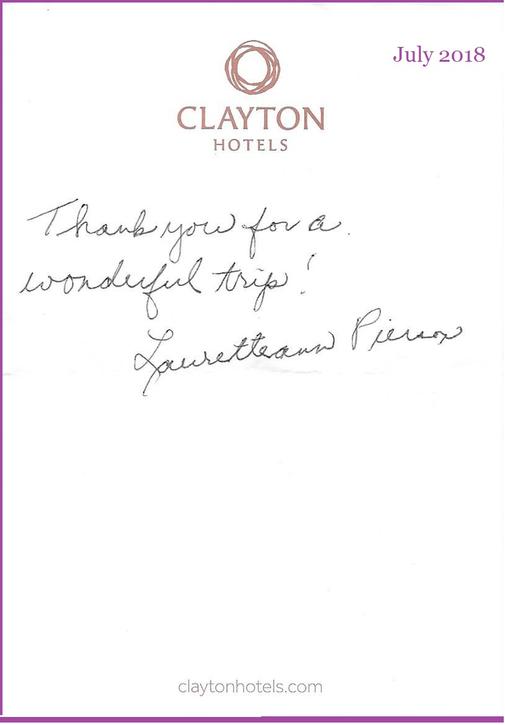 July 2018
CLAYTON
HOTELS
Thank you for a
wonderful trip!
Lauretteann Pierson
claytonhotels.com